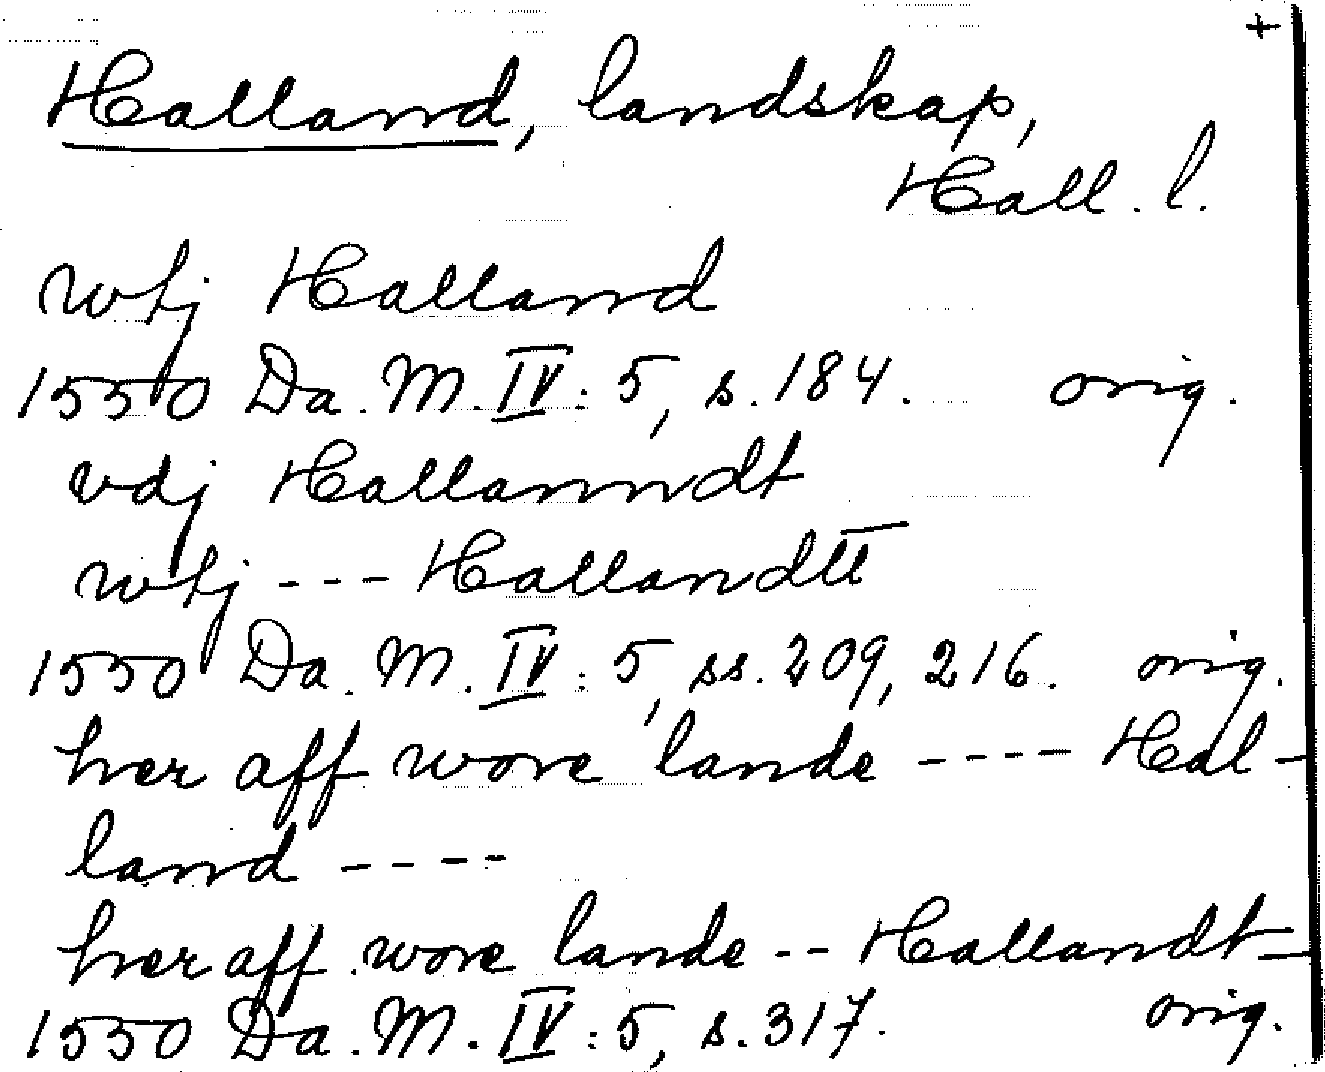 +
Halland, landskap,
Hall. l.
whj Halland
1550 Da. M. IV: 5, s. 184. orig.
vdj Hallanndt
whj --- Hallandtt
1550 Da. M. IV: 5, ss. 209, 216. orig.
her aff wore lande ---- Hal-
land ----
her aff wore lande -- Hallandt -
1550 Da. M. IV: 5, s. 317. orig.